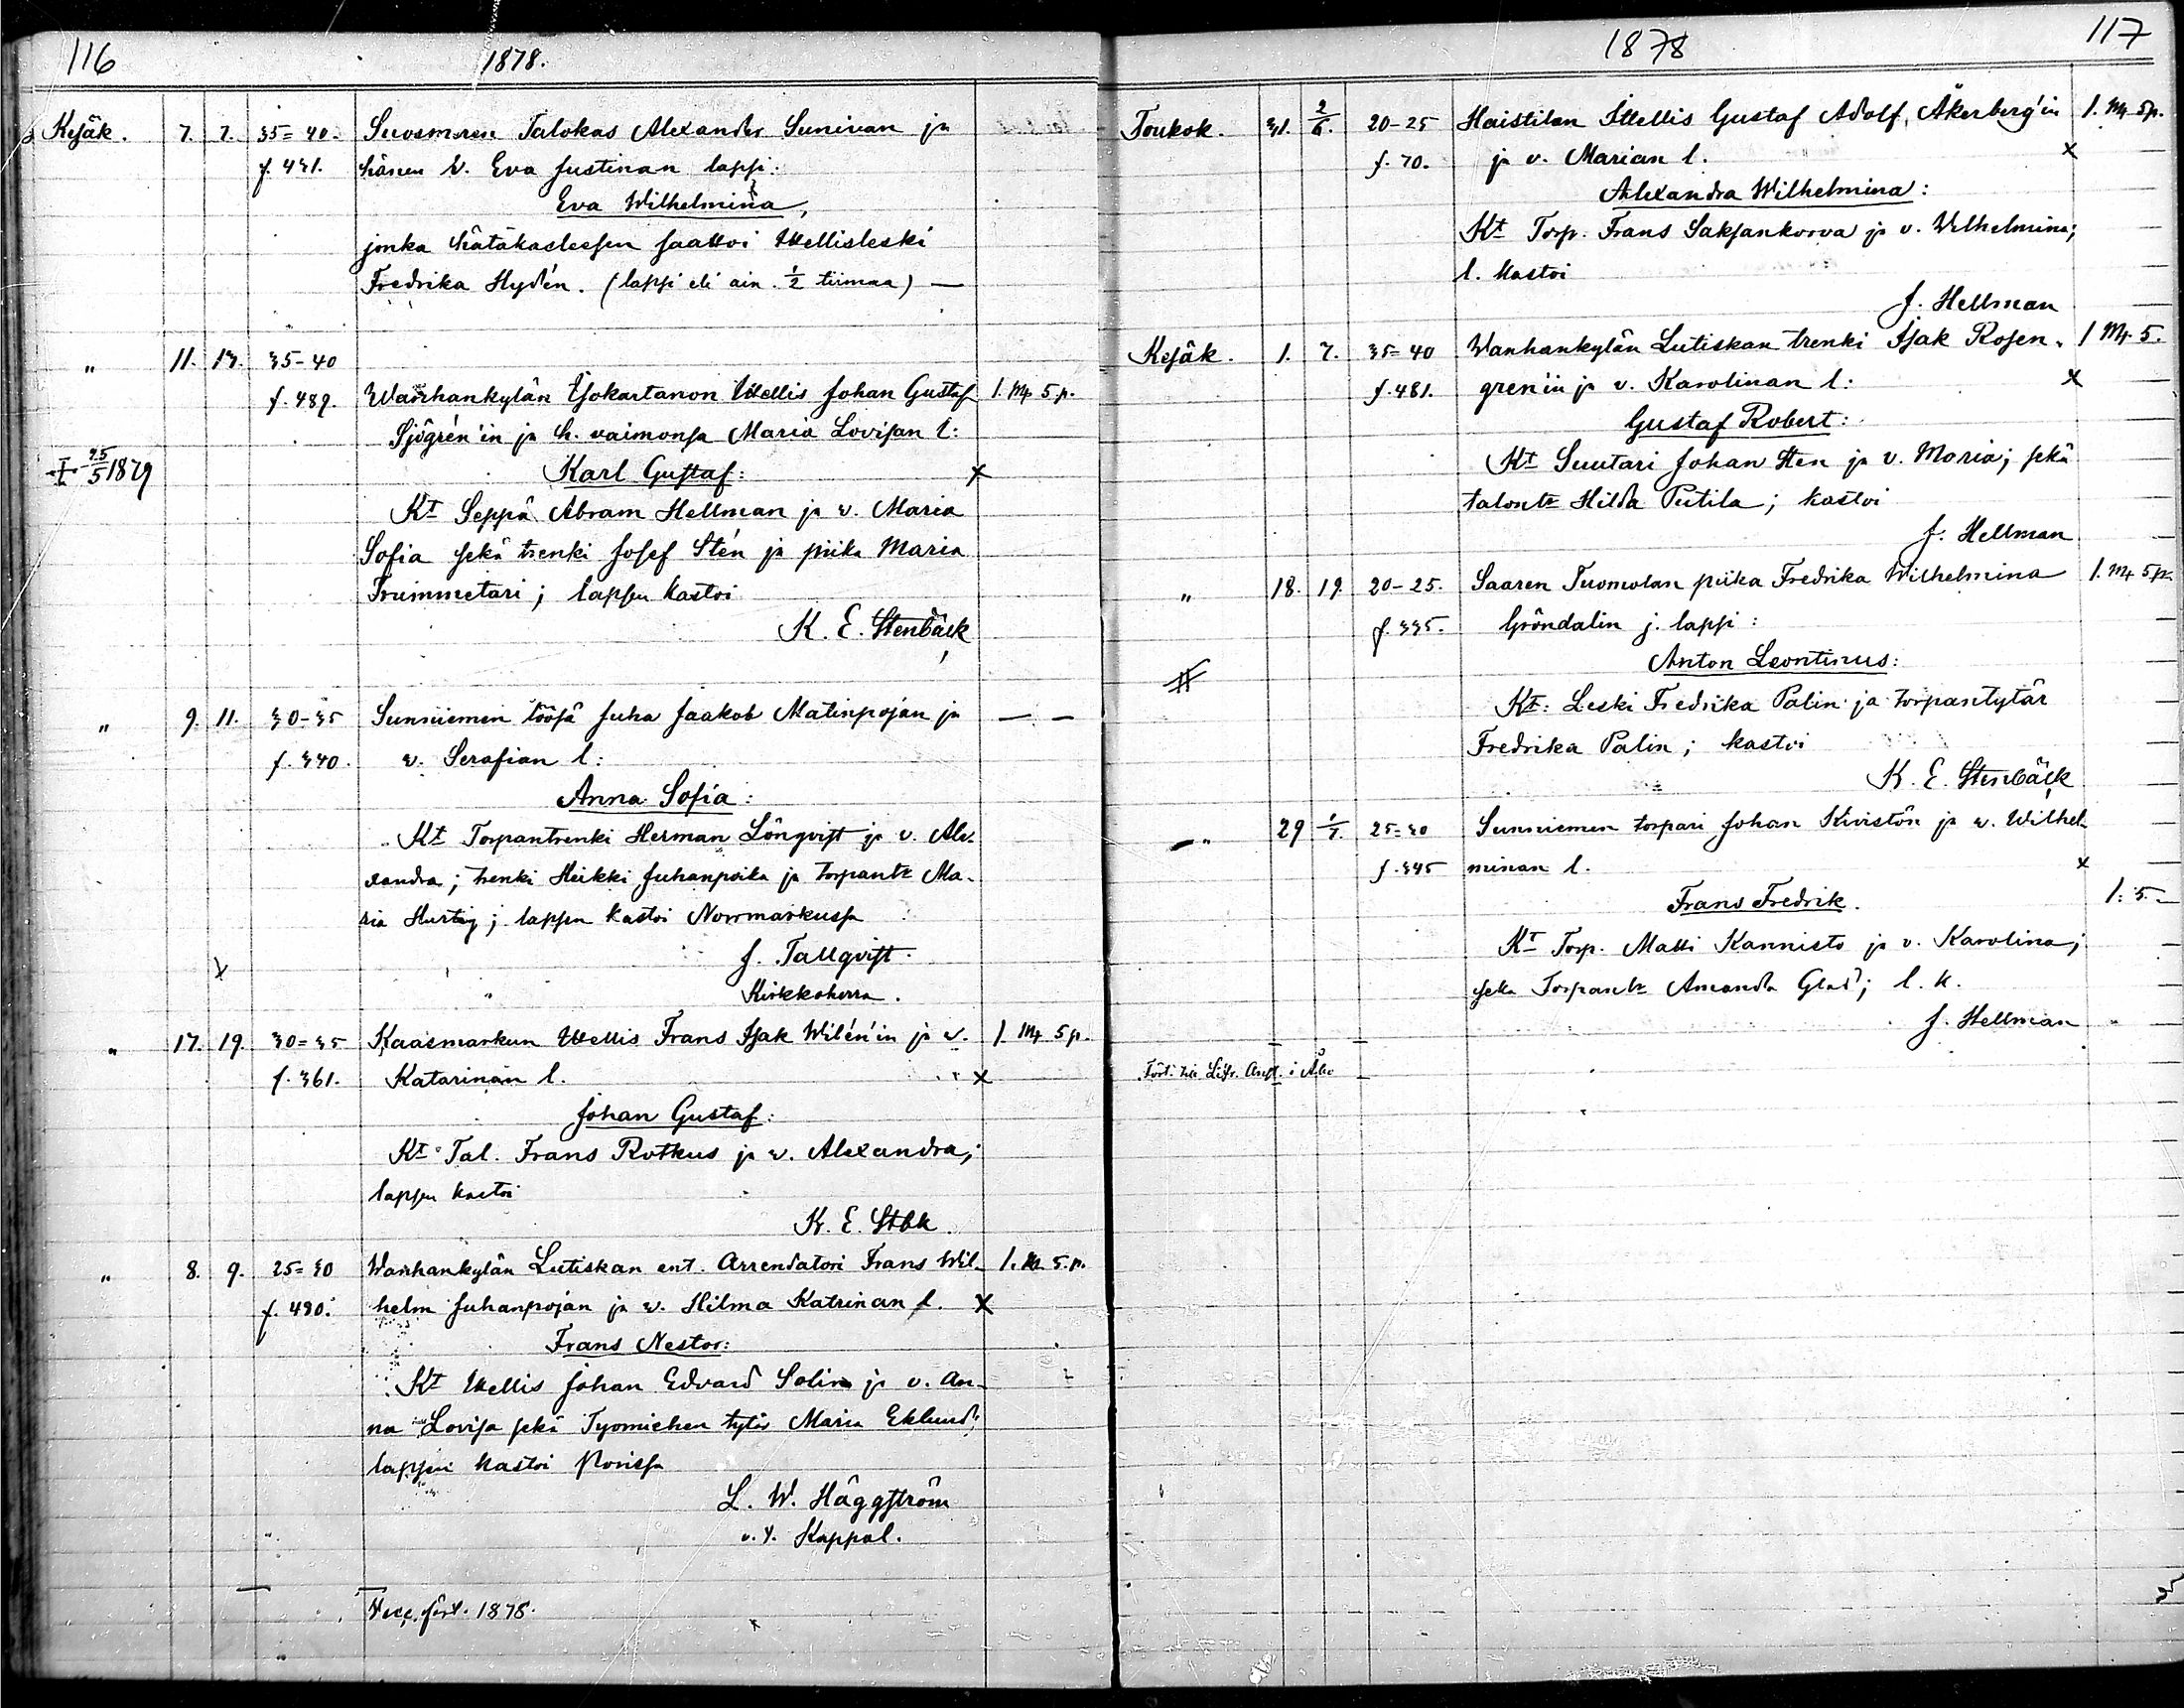 116
1878.
Kesäk. 7. 7. 35=40. Suosmeren Talokas Alexander Sunivan ja
f. 431. hänen v. Eva Justinan lapsi:
Eva Wilhelmina,
jonka hätäkasteesen saattoi Itellisleski
Fredrika Hydén. (lapsi eli ain. 1/2 tiimaa) —
" 11. 13. 35-40
f. 489. Wanhankylän Isokartanon Itellis Johan Gustaf 1. Mk 5 p.
Sjögrén'in ja h. vaimonsa Maria Lovisan l:
25/5 1879 Karl Gustaf: x
Kt Seppä Abram Hellman ja v. Maria
Sofia sekä trenki Josef Stén ja piika Maria
Trummetari; lapsen kastoi
K. E. Stenbäck
" 9. 11. 30-35 Sunniemen löösä Juha Jaakob Matinpojan ja — —
f. 340. v. Serafian l:
Anna Sofia:
Kt Torpantrenki Herman Löngvist ja v. Alex-
xandra; trenki Heikki Juhanpoika ja torpantr Ma-
ria Hurtig; lapsen kastoi Norrmarkussa
J. Tallqvist.
x
Kirkkoherra.
" 17. 19. 30=35 Kaasmarkun Itellis Frans Isak Wilén'in ja v. 1. Mk 5 p.
f. 361. Katarinan l. x
Johan Gustaf:
Kt Tal. Frans Rotkus ja v. Alexandra;
lapsen kastoi
K. E. Stbk.
" 8. 9. 25=30 Wanhankylän Lutiskan ent. Arrendatori Frans Wil- 1. M. 5. p.
f. 480. helm Juhanpojan ja v. Hilma Katrinan l. x
Frans Nestor:
Kt Itellis Johan Edvard Solin ja v. An-
na Lovisa sekä Tyomiehen tytär Maria Eklund;
lapsen kastoi Porissa
L. W. Häggström
v. t. Kappal.
1878.
117
1878
Toukok. 31. 2/6. 20-25 Haistilan Itellis Gustaf Adolf Åkerberg'in 1. Mk 5 p.
f. 70. ja v. Marian l. x
Alexandra Wilhelmina:
Kt Torp. Frans Saksankorva ja v. Wilhelmina;
l. kastoi
J. Hellman
Kesäk. 1. 7. 35=40 Wanhankylän Lutiskan trenki Isak Rosen- 1 Mk. 5.
f. 481. gren'in ja v. Karolinan l: x
Gustaf Robert:
Kt Suutari Johan Sten ja v. Maria; sekä
talontr Hilda Putila; kastoi
J. Hellman
" 18. 19. 20-25. Saaren Tuomolan piika Fredrika Wilhelmina 1. Mk 5 p.
f. 335. Gröndalin j. lapsi:
Anton Leontinus:
Kt: Leski Fredrika Palin ja torpantytär
Fredrika Palin; kastoi
K. E. Stenbäck
" 29 1/7. 25=30 Sunniemen torpari Johan Kivistön ja v. Wilhel-
f. 345 minan l. x
Frans Fredrik. 1: 5. –
Kt Torp. Matti Kannisto ja v. Karolina;
sekä Torpantr Amanda Glad; l. k.
J. Hellman
i Åbo